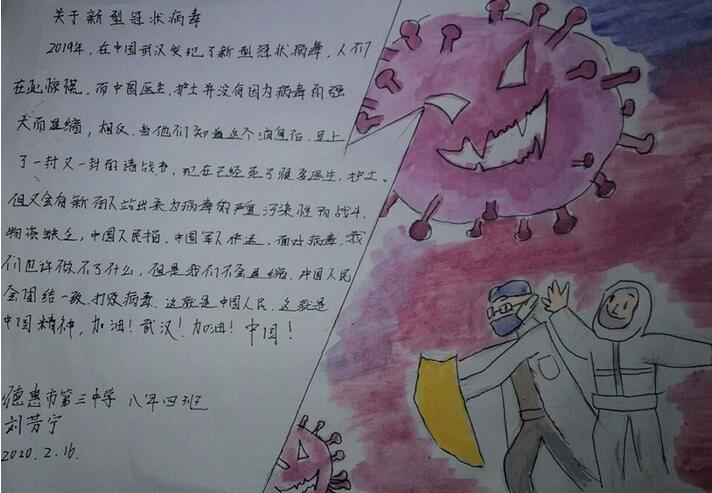 关于新型冠状病毒
2019年，在中国武汉发现了新型冠状病毒，人们
在恐惊慌，而中国医生、护士并没有因为病毒的强
大而退缩，相反，当他们知道这个消息后，呈上
了一封又一封的请战书，现在已经死了很多医生、护士。
但又会有新的人站出来为病毒的严重污染性而战斗，
物资缺乏，中国人民捐，中国军人传送，面对病毒，我
们也许做不了什么，但是我们不会退缩，中国人民
会团结一致，打败病毒，这就是中国人民，这就是
中国精神，加油！武汉！加油！中国！
德惠市第三中学 八年四班
刘芳宁
2020.2.16.